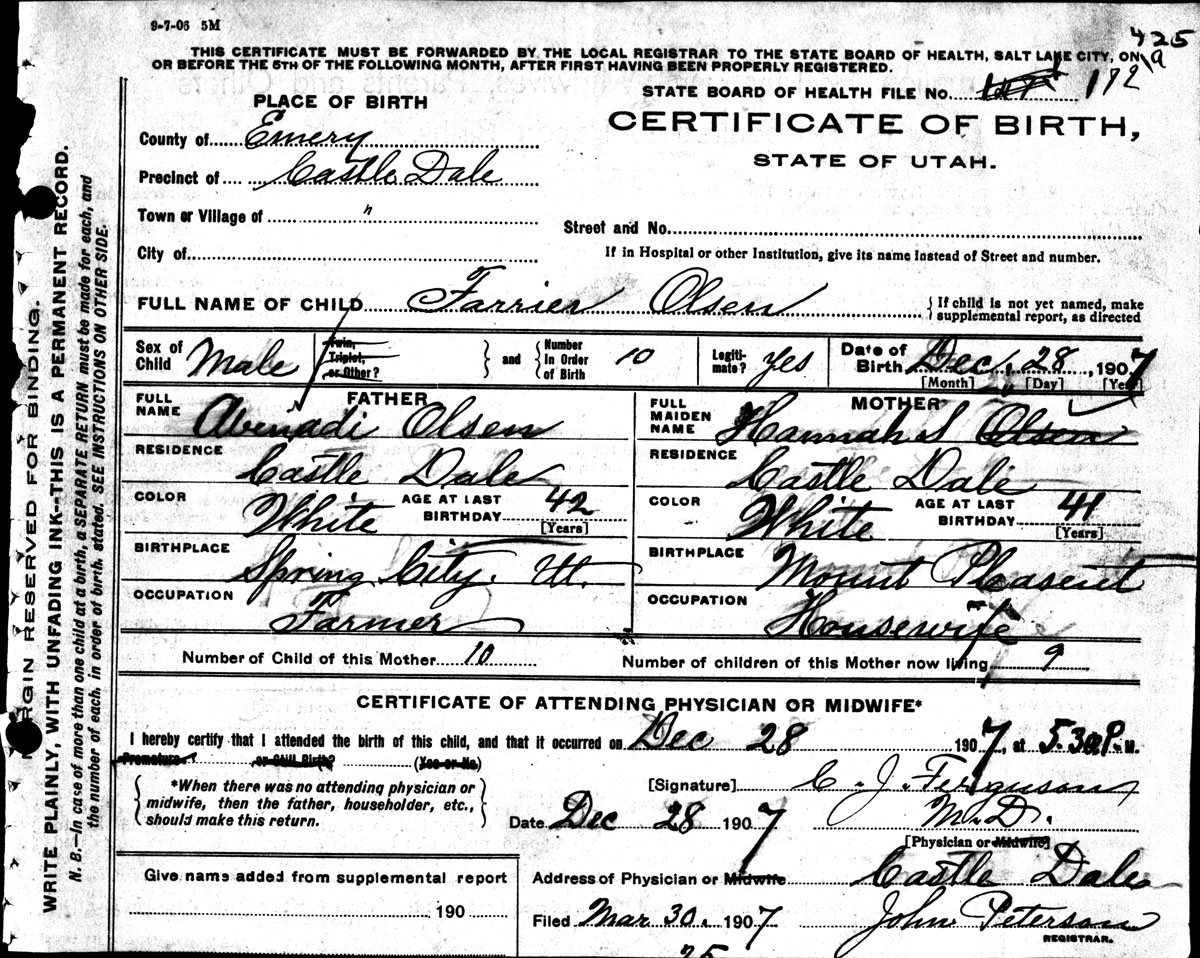 9-7-06 5M
425
THIS CERTIFICATE MUST BE FORWARDED BY THE LOCAL REGISTRAR TO THE STATE BOARD OF HEALTH, SALT LAKE CITY, ON
OR BEFORE THE 5TH OF THE FOLLOWING MONTH, AFTER FIRST HAVING BEEN PROPERLY REGISTERED.
PLACE OF BIRTH
STATE BOARD OF HEALTH FILE No. 172
County of Emery
CERTIFICATE OF BIRTH,
STATE OF UTAH.
Precinct of Castle Dale
Town or Village of "
Street and No.
City of
If in Hospital or other Institution, give its name instead of Street and number.
FULL NAME OF CHILD Farrier Olsen
If child is not yet named, make
supplemental report, as directed
Sex of Child Male
Twin, Triplet, or Other?
and
Number in Order of Birth 10
Legitimate? Yes
Date of Birth Dec. 28, 1907
[Month] [Day] [Year]
FATHER
FULL NAME Abinadi Olsen
RESIDENCE Castle Dale
COLOR White
AGE AT LAST BIRTHDAY 42
[Years]
BIRTHPLACE Spring City. Ut.
OCCUPATION Farmer
MOTHER
FULL MAIDEN NAME Hannah S Olsen
RESIDENCE Castle Dale
COLOR White
AGE AT LAST BIRTHDAY 41
[Years]
BIRTHPLACE Mount Pleasent
OCCUPATION Housewife
Number of Child of this Mother 10
Number of children of this Mother now living 9
CERTIFICATE OF ATTENDING PHYSICIAN OR MIDWIFE*
I hereby certify that I attended the birth of this child, and that it occurred on Dec 28 1907, at 5.30 P. M.
Premature or Still Birth? (Yes or No)
*When there was no attending physician or
midwife, then the father, householder, etc.,
should make this return.
[Signature] C. J. Ferguson
M.D.
Date Dec 28 1907
[Physician or Midwife]
Give name added from supplemental report
190
Address of Physician or Midwife Castle Dale
Filed Mar 30. 1907 John Peterson
REGISTRAR.
25
MARGIN RESERVED FOR BINDING.
WRITE PLAINLY, WITH UNFADING INK--THIS IS A PERMANENT RECORD.
N. B.—In case of more than one child at a birth, a SEPARATE RETURN must be made for each, and
the number of each, in order of birth, stated. SEE INSTRUCTIONS ON OTHER SIDE.